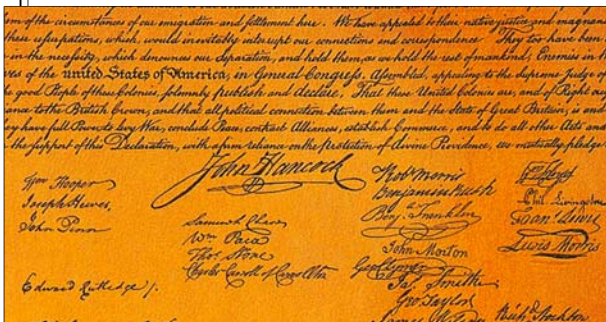 tion of the circumstances of our emigration and settlement here. We have appealed to their native justice and magnan
these usurpations, which, would inevitably interrupt our connections and correspondence They too have been
in the necessity, which denounces our Separation, and hold them, as we hold the rest of mankind, Enemies in
ves of the united States of America, in General Congress, Assembled, appealing to the Supreme Judge of
he good People of these Colonies, solemnly publish and declare, That these United Colonies are, and of Right oug
ance to the British Crown, and that all political connection between them and the State of Great Britain, is and
they have full Power to levy War, conclude Peace, contract Alliances, establish Commerce, and to do all other Acts and
the support of this Declaration, with a firm reliance on the Protection of divine Providence, we mutually pledge
John Hancock
Wm Hooper
Joseph Hewes,
John Penn
Edward Rutledge /.
Samuel Chase
Wm Paca
Thos Stone
Charles Carroll of Carrollton
Robt Morris
Benjamin Rush
Benj. Franklin
John Morton
Geo Clymer
Jas. Smith
Geo. Taylor
Phil. Livingston
Frans. Lewis
Lewis Morris
Richd. Stockton